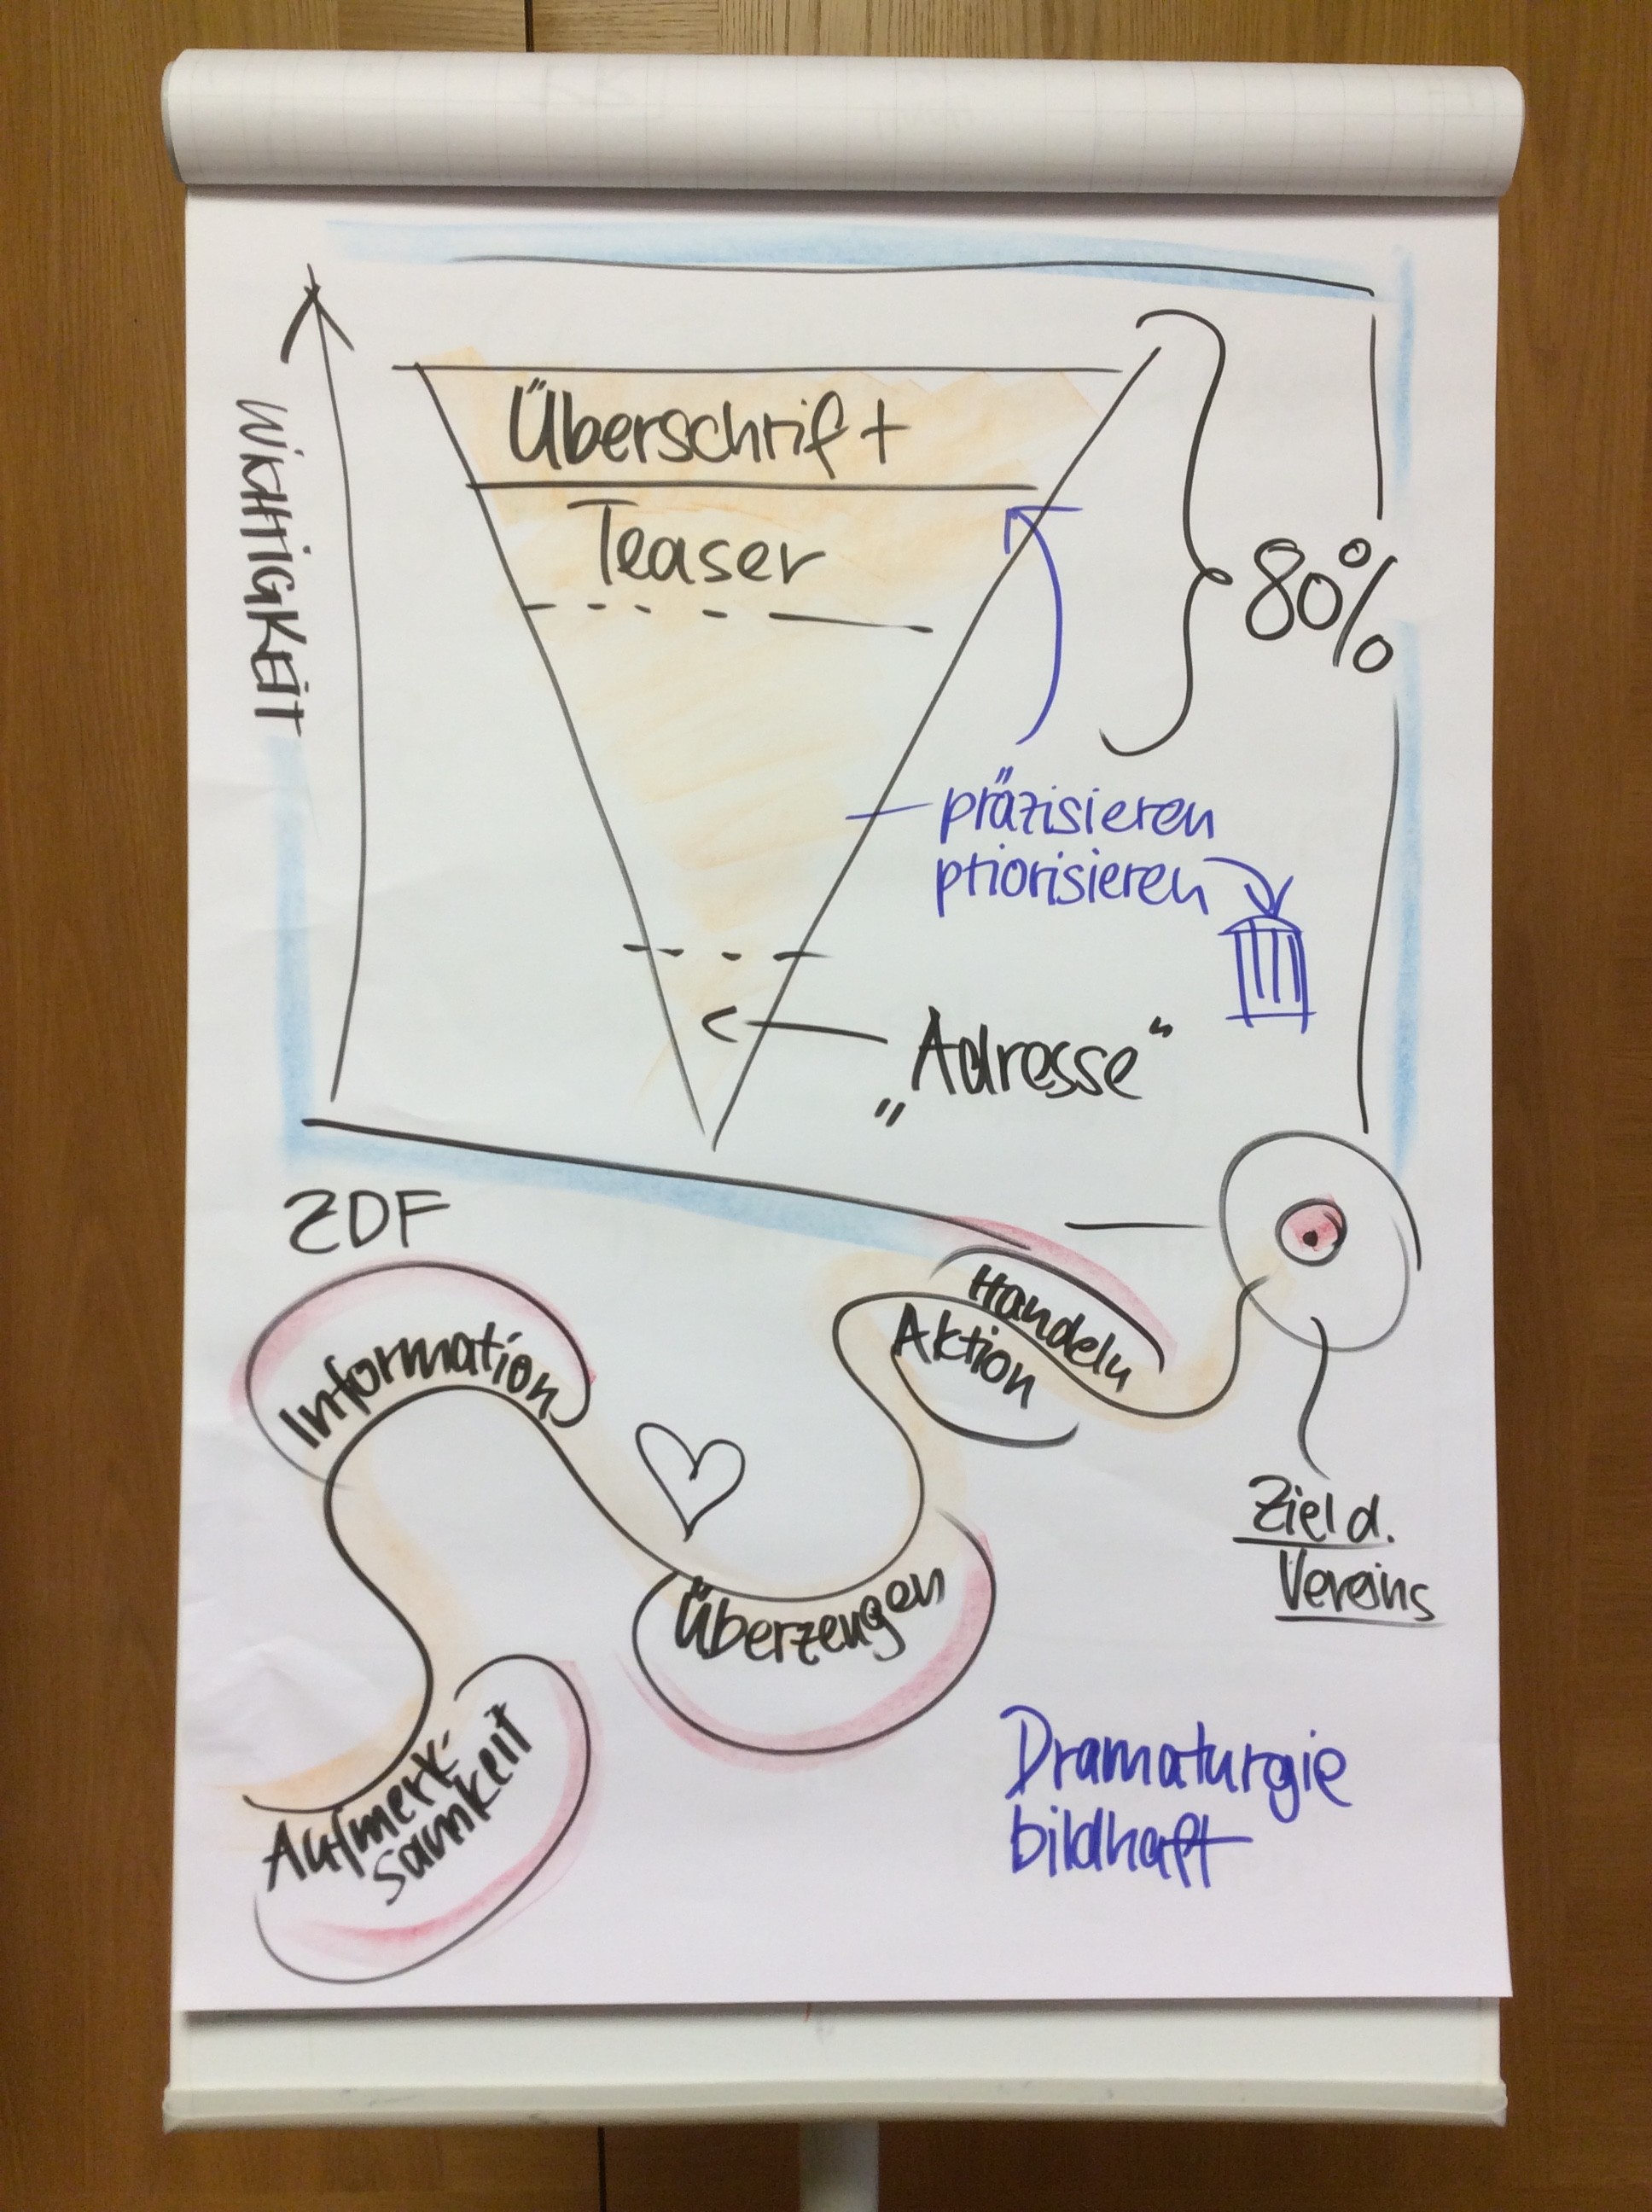 WICHTIGKEIT
Überschrift
Teaser
80%
präzisieren
priorisieren
„Adresse“
ZDF
Information
Handeln
Aktion
Überzeugen
Ziel d.
Vereins
Aufmerk-
samkeit
Dramaturgie
bildhaft